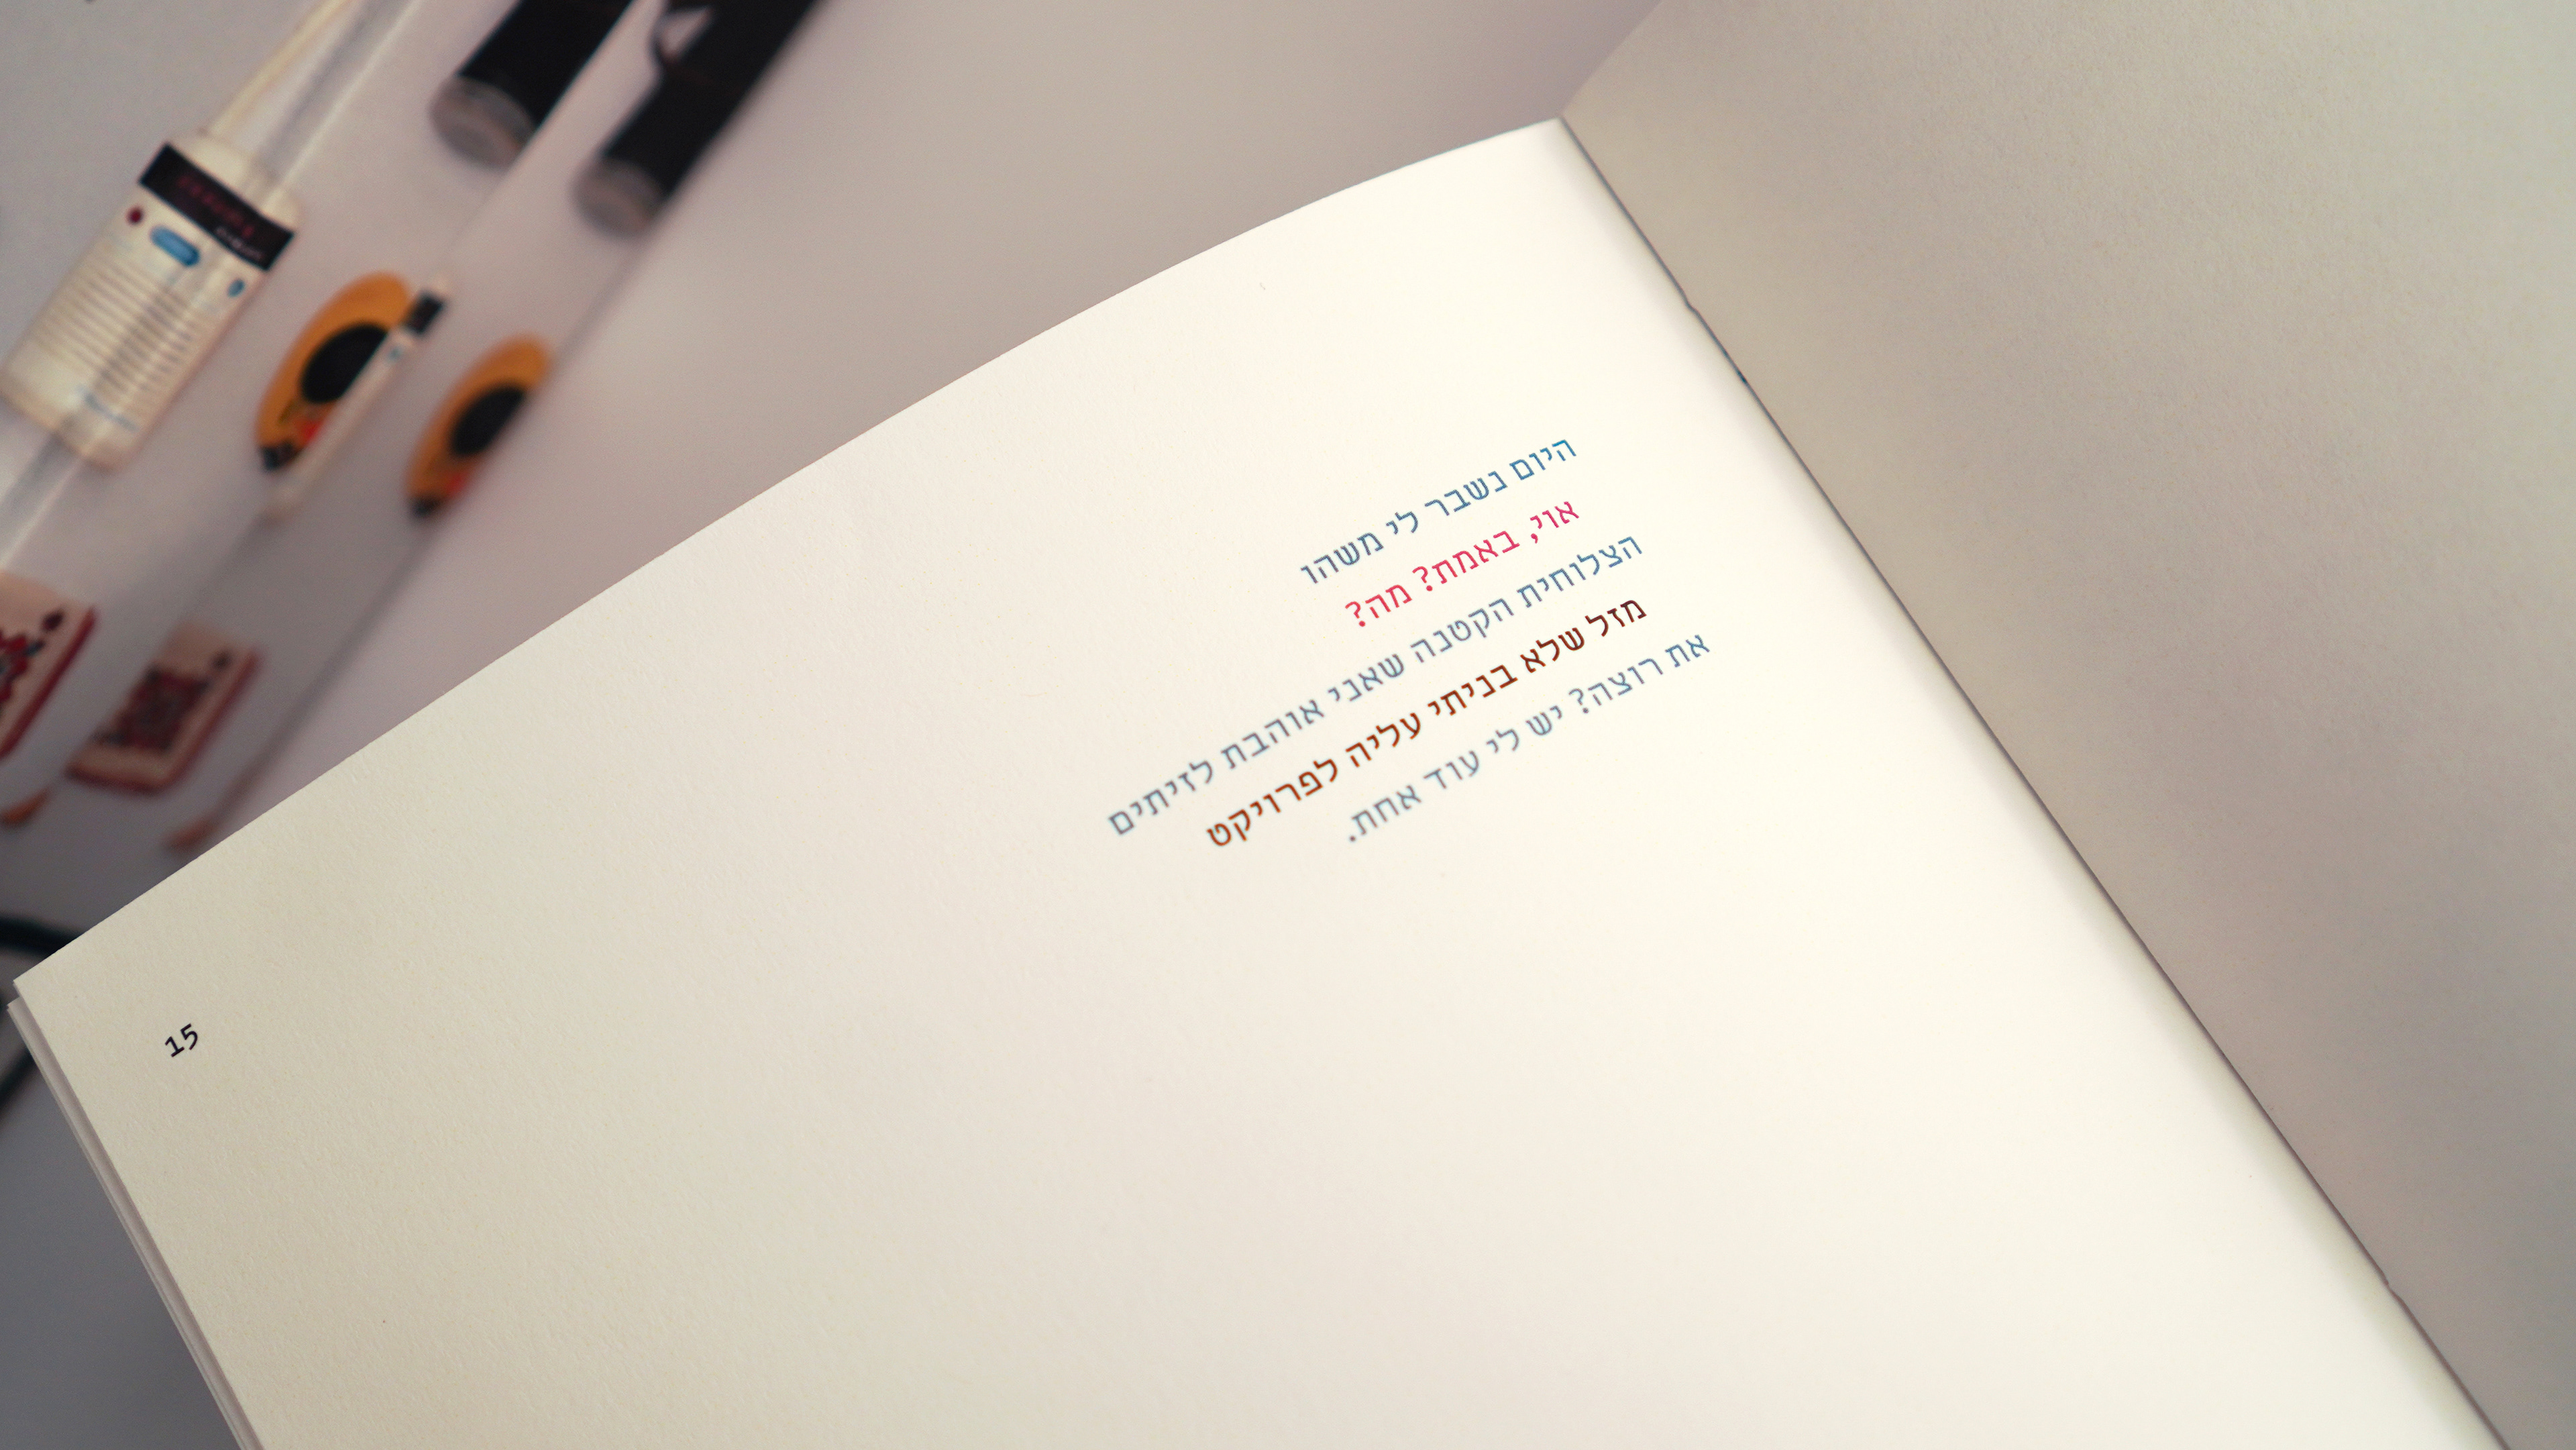 היום נשבר לי משהו
אוי, באמת? מה?
הצלוחית הקטנה שאני אוהבת לזיתים
מזל שלא בניתי עליה לפרויקט
את רוצה? יש לי עוד אחת.
15